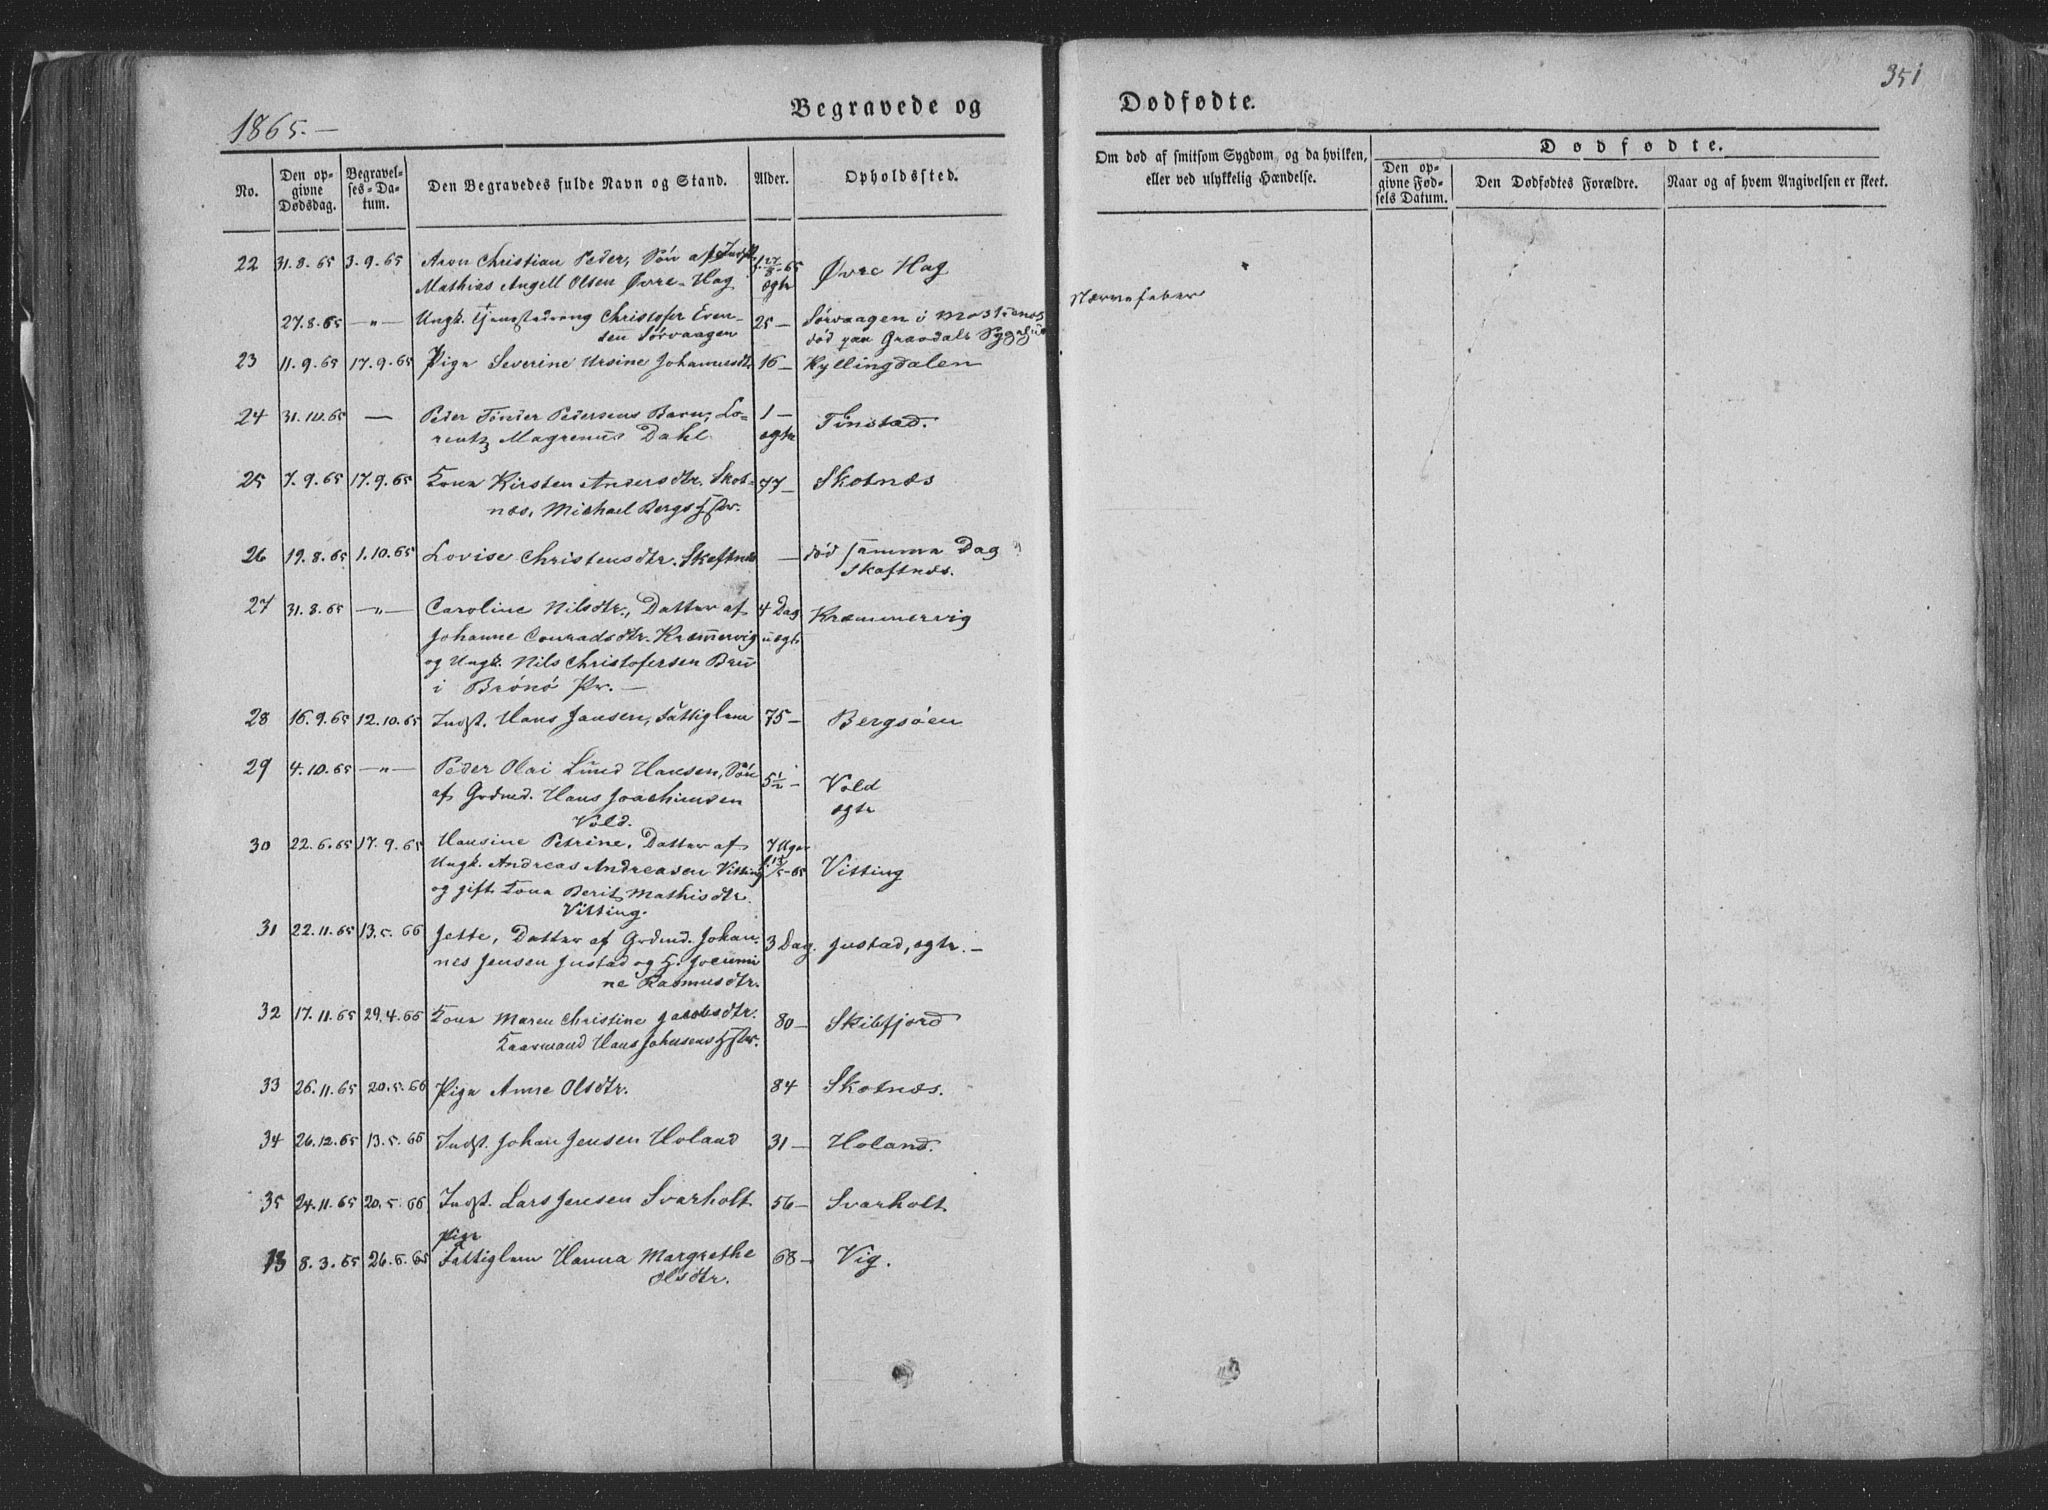 351
1865.-
Begravede og Dødfødte.
No. Den opgivne Dødsdag. Begravelses-Datum. Den Begravedes fulde Navn og Stand. Alder. Opholdssted.
Om død af smitsom Sygdom, og da hvilken, eller ved ulykkelig Hændelse.
Dødfødte.
Den opgivne Fødsels Datum. Den Dødfødtes Forældre. Naar og af hvem Angivelsen er skeet.
22 31.8.65 3.9.65 Aron Christian Peder, Søn af Indst. f. 27/8-65 Øvre Hag
Mathias Angell Olsen Øvre-Hag ægte
27.8.65 -„- Ungk. Christofer Even- 25- Sørvaagen i Moskenes Nærvefeber
sen Sørvaagen død paa Gravdals Sygehus
23 11.9.65 17.9.65 Pige Severine Ursine Johannesdtr. 16- Kyllingdalen
24 31.10.65 — Peder Tønder Pedersens Barn, Lo- 1- Finstad.
rentz Magrenus Dahl. ægte
25 7.9.65 17.9.65 Kone Kirsten Andersdtr. Skot- 77- Skotnæs
næs, Michael Bergs Hstr.
26 19.8.65 1.10.65 Lovise Christensdtr. Skaftnæs - død samme Dag
Skaftnæs.
27 31.8.65 -„- Caroline Nilsdtr., Datter af 4 Dag Kræmmervig
Johanne Conradsdtr. Kræmmervig uægte
og Ungk. Nils Christofersen Bru
i Brönö Pr.-
28 16.9.65 12.10.65 Indst. Hans Jansen, Fattiglem 75- Bergsøen
29 4.10.65 -„- Peder Olai Lund Hansen, Søn 5½- Vold
af Grdmd. Hans Joachimsen ægte
Vold.
30 22.6.65 17.9.65 Hansine Petrine, Datter af 7 Uger Vitting
Ungk. Andreas Andreasen Vitting
og gift Kone Berit Mathisdtr.
Vitting.
31 22.11.65 13.5.66 Jette, Datter af Grdmd. Johan- 3 Dag. Justad, ægte.-
nes Jensen Justad og H. Jocumi
ne Rasmusdtr.
32 17.11.65 29.4.66 Kone Maren Christine Jacobsdtr. 80- Skibfjord
Kaarmand Hans Johnsens Hstr.
33 26.11.65 20.5.66 Pige Anne Olsdtr. 84 Skotnæs.
34 26.12.65 13.5.66 Indst. Johan Jensen Holand 31- Holand.
35 24.11.65 20.5.66 Indst. Lars Jensen Svarholt 56- Svarholt
Pige
13 8.3.65 26.5.65 Fattiglem Hanna Margrethe 68- Vig.
Olsdtr.